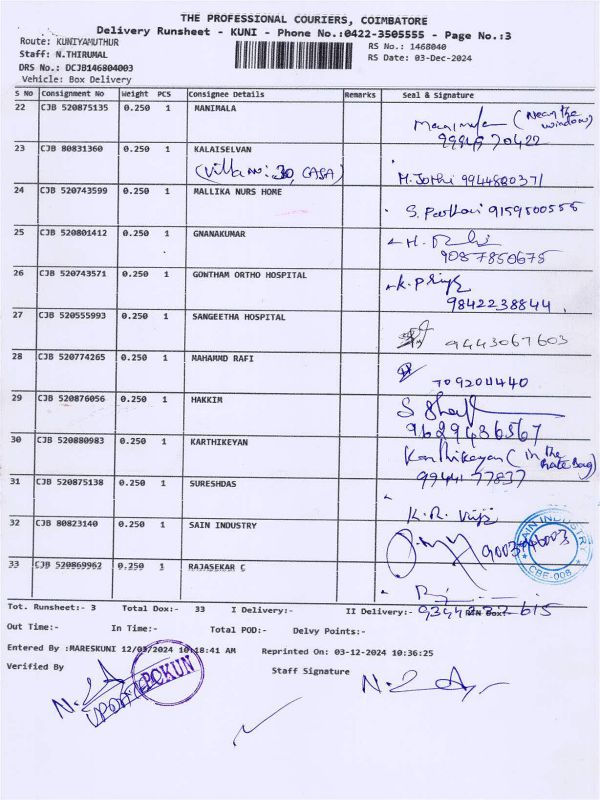 THE PROFESSIONAL COURIERS, COIMBATORE
Delivery Runsheet - KUNI - Phone No.:0422-3505555 - Page No.:3
Route: KUNIYAMUTHUR RS No.: 1468040
Staff: N.THIRUMAL RS Date: 03-Dec-2024
DRS No.: DCJB146804003
Vehicle: Box Delivery
S No Consignment No Weight PCS Consignee Details Remarks Seal & Signature
22 CJB 520875135 0.250 1 MANIMALA
(Near the window)
23 CJB 80831360 0.250 1 KALAISELVAN
(Villa no: 30, CASA) M. Jothi 9944820371
24 CJB 520743599 0.250 1 MALLIKA NURS HOME
9159500555
25 CJB 520801412 0.250 1 GNANAKUMAR
9087850675
26 CJB 520743571 0.250 1 GOWTHAM ORTHO HOSPITAL
9842238844
27 CJB 520555993 0.250 1 SANGEETHA HOSPITAL
9443067603
28 CJB 520774265 0.250 1 MAHAMMD RAFI
7092011440
29 CJB 520876056 0.250 1 HAKKIM
9629436367
30 CJB 520880983 0.250 1 KARTHIKEYAN
Karthikeyan (in the
9944177837
31 CJB 520875138 0.250 1 SURESHDAS
K.R.
32 CJB 80823140 0.250 1 SAIN INDUSTRY
SAIN INDUSTRY
CBE-008
33 CJB 520869962 0.250 1 RAJASEKAR C
Tot. Runsheet:- 3 Total Dox:- 33 I Delivery:- II Delivery:-
Out Time:- In Time:- Total POD:- Delvy Points:-
Entered By :MARESKUNI 12/03/2024 10:18:41 AM Reprinted On: 03-12-2024 10:36:25
Verified By Staff Signature
POKUN